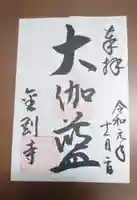 奉拝
令和元年
十一月二日
大伽藍
金剛寺